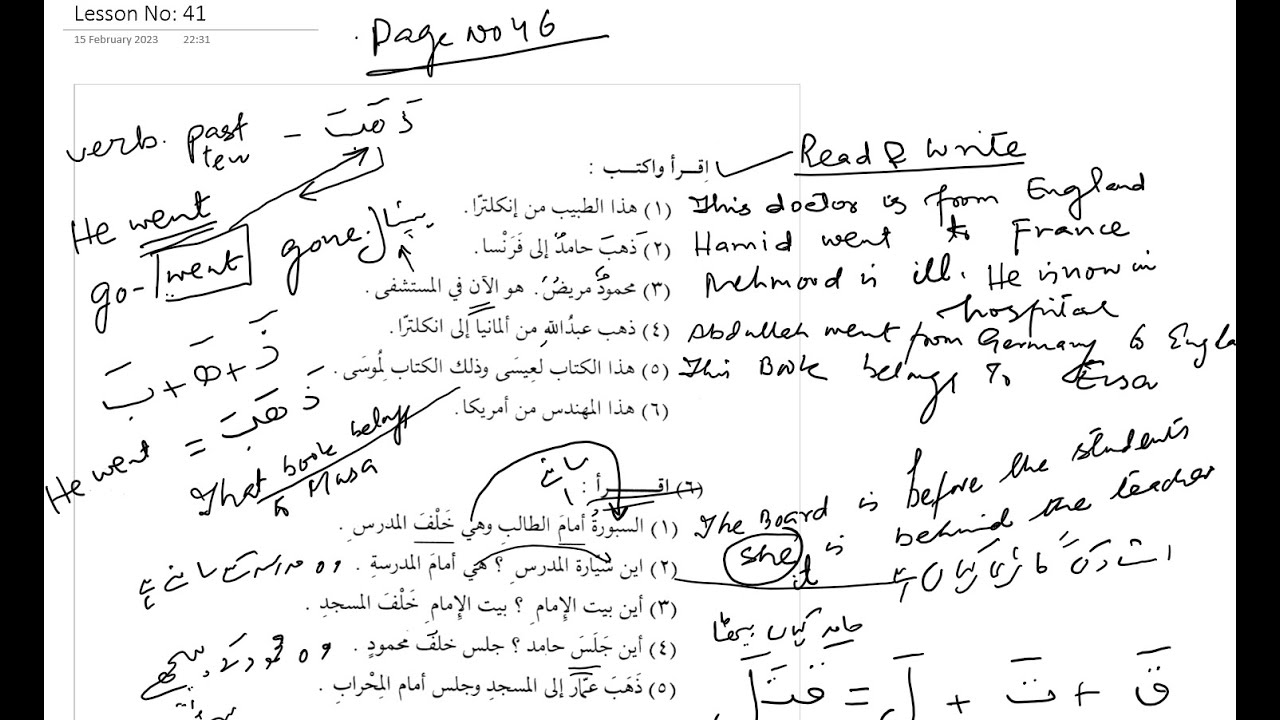 Lesson No: 41
15 February 2023 22:31
Page No 46
verb. past - ذَهَبَ
He went
go - went gone.
ذَ + هَ + بَ
He went = ذَهَبَ
That book belongs
to Musa
إقرأ واكتب :
Read & Write
(١) هذا الطبيب من إنكلترّا.
This doctor is from England
(٢) ذهبَ حامدٌ إلى فَرَنْسا.
Hamid went to France
(٣) محمودٌ مريضٌ. هو الآن في المستشفى.
Mehmood is ill. He is now in
hospital
(٤) ذهب عبدُالله من ألمانيا إلى انكلترّا.
Abdullah went from Germany to Engla
(٥) هذا الكتاب لعِيسَى وذلك الكتاب لِمُوسَى.
This Book belongs to Eisa
(٦) هذا المهندس من أمريكا.
(٦) اقرأ :
سامنے
(١) السبّورةُ أمامَ الطالبِ وهي خَلْفَ المدرس.
The Board is before the students
she is behind the teacher
it
(٢) اين سيّارة المدرس ؟ هي أمامَ المدرسةِ.
وہ مدرسہ کے سامنے ہے
(٣) أين بيت الإمامِ ؟ بيت الإمامِ خَلْفَ المسجدِ.
(٤) أين جَلَسَ حامد ؟ جلس خلفَ محمودٍ.
حامد کہاں بیٹھا
(٥) ذَهَبَ عمّارٌ إلى المسجدِ وجلس أمام المِحْرابِ.
قَ + تَ + لَ = قَتَلَ